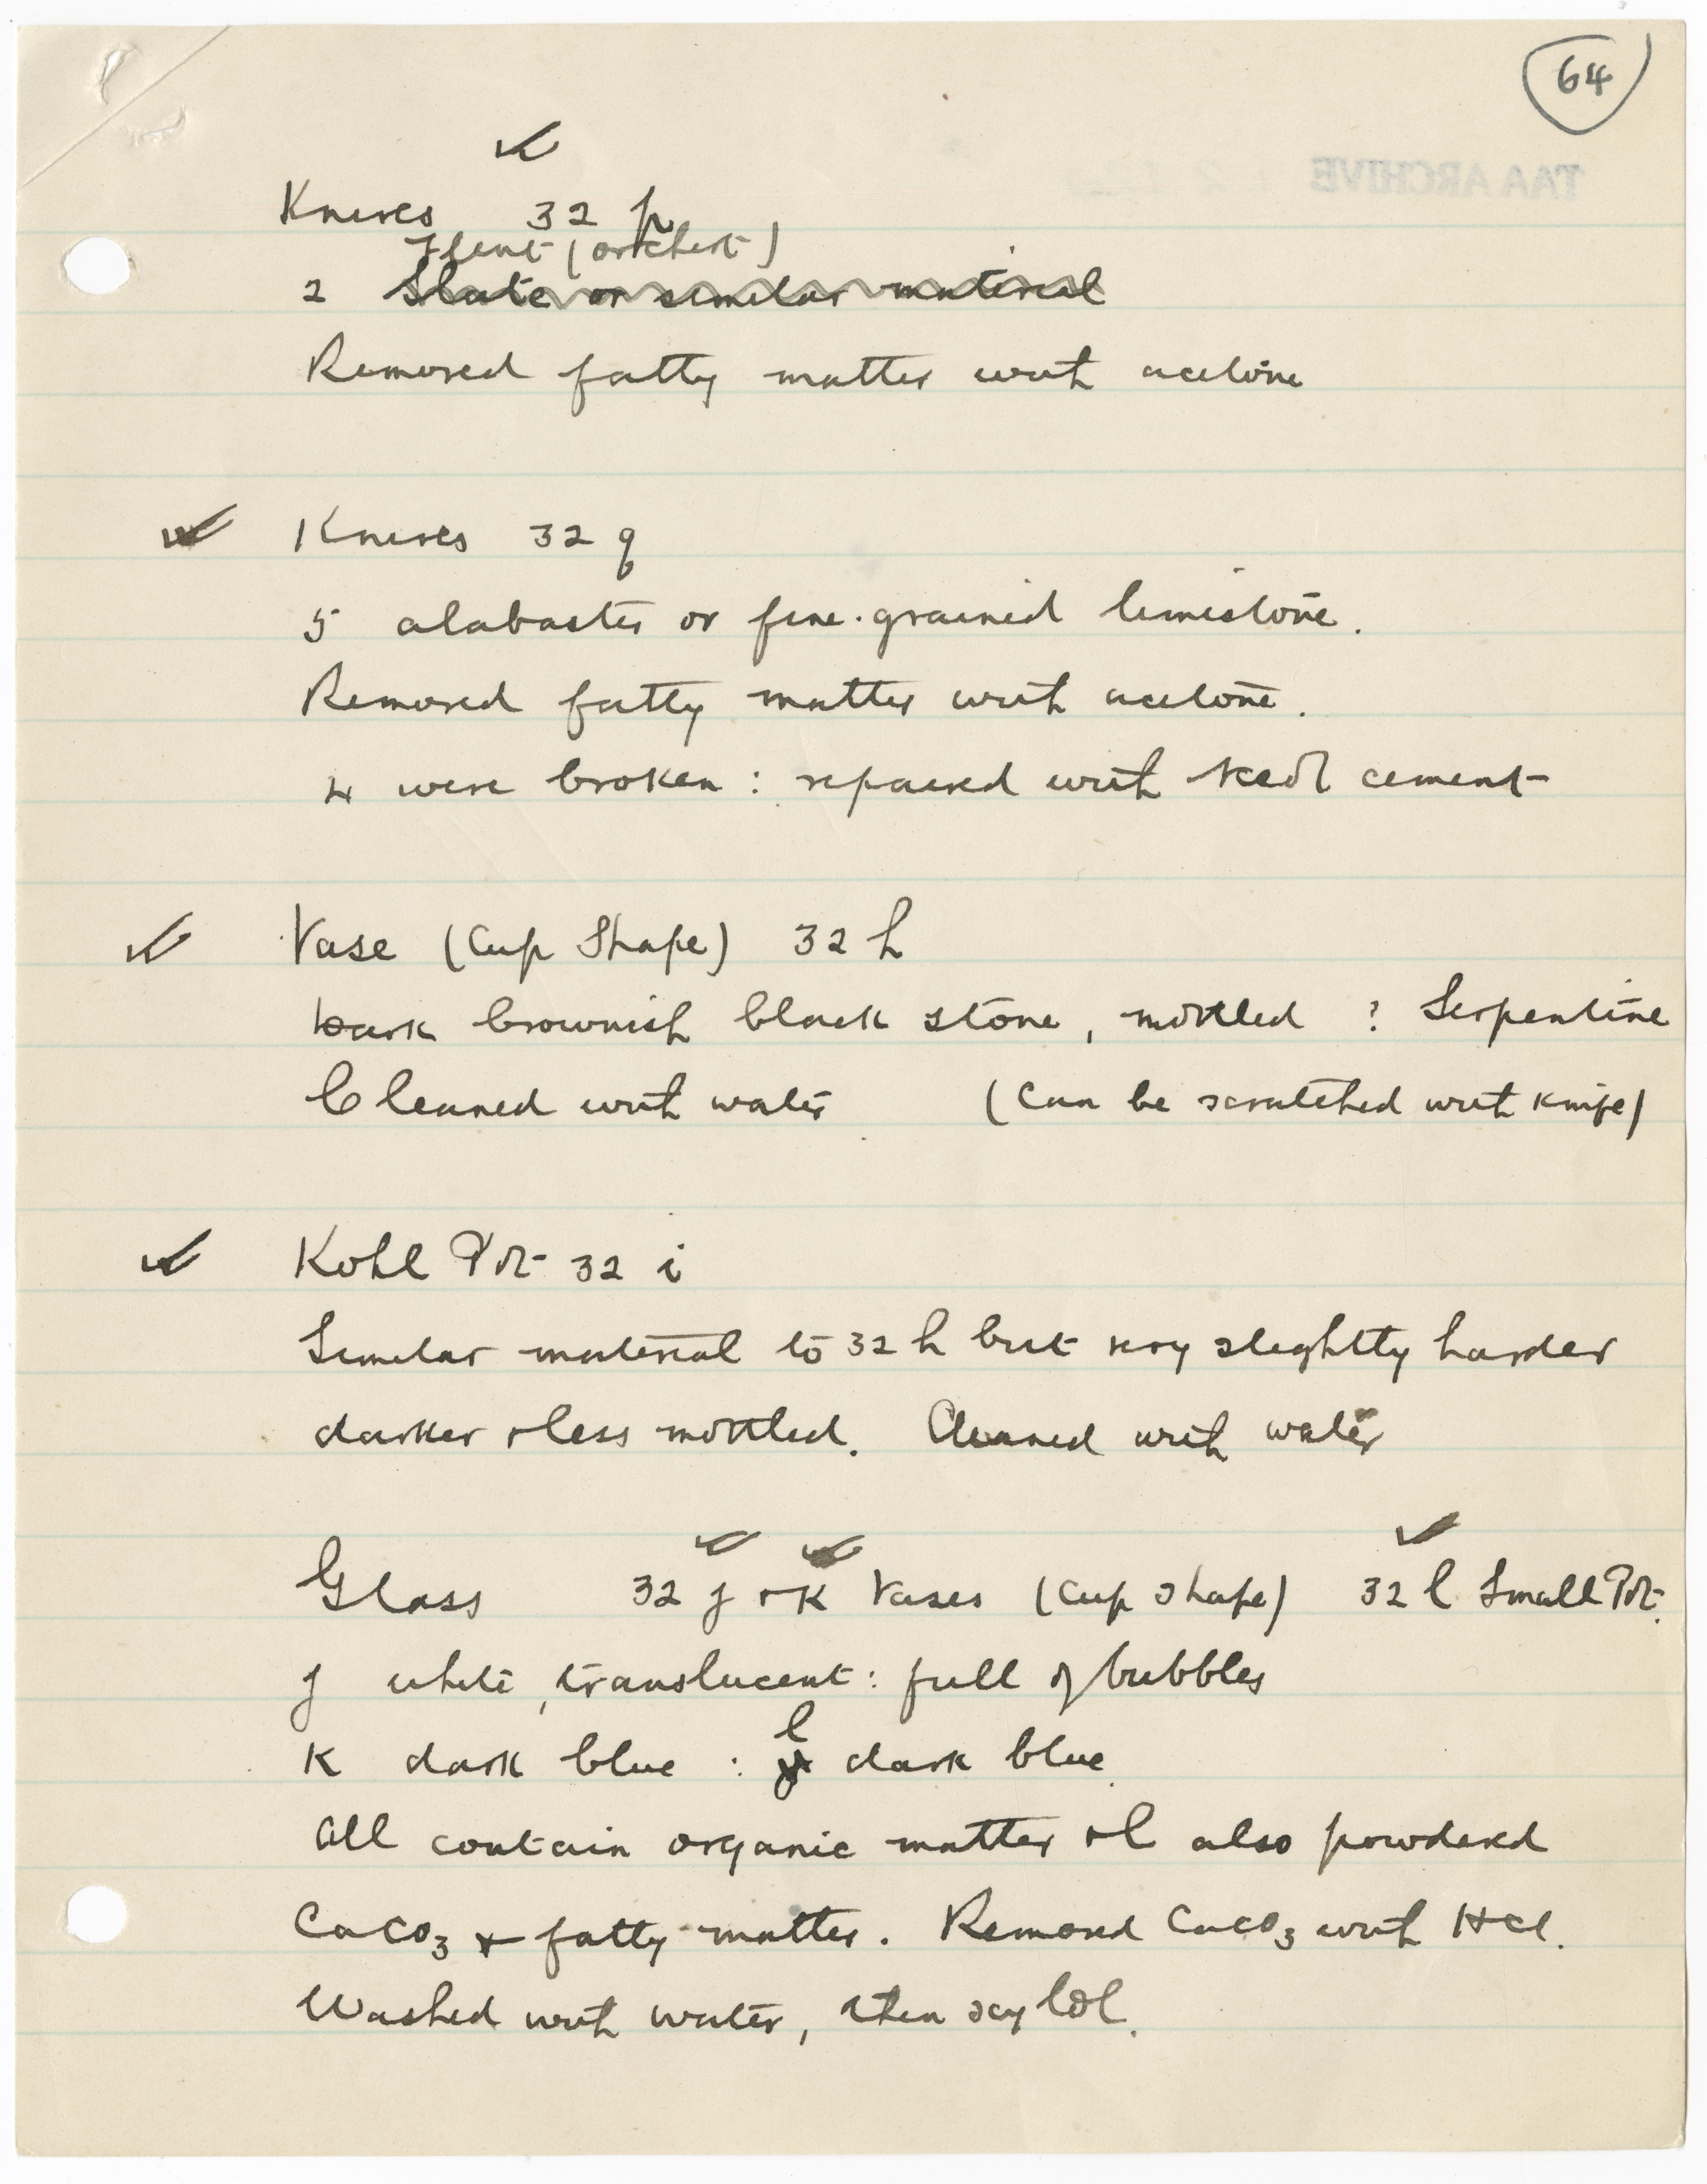 64
TAA ARCHIVE
Knives 32 p
Flint (or chert)
2 Slate or similar material
Removed fatty matter with acetone
Knives 32 q
5 alabaster or fine-grained limestone.
Removed fatty matter with acetone.
4 were broken : repaired with cement
Vase (Cup Shape) 32 h
Dark brownish black stone, mottled ? Serpentine
Cleaned with water (Can be scratched with knife)
Kohl Pot 32 i
Similar material to 32 h but very slightly harder
darker & less mottled. Cleaned with water
Glass 32 j & K Vases (Cup Shape) 32 l Small Pot.
j white, translucent : full of bubbles
K dark blue : l dark blue.
All contain organic matter & l also powdered
CaCO3 & fatty matter. Removed CaCO3 with HCl.
Washed with water, then xylol.